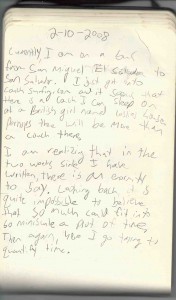 2-10-2008
Currently I am on a bus
from San Miguel El Salvador to
San Salvador. I just got into
Couch Surfing.com and it seems that
there is a couch I can sleep on
at a British girl named
Perhaps there will be more than
a couch there.
I am realizing that in the
two weeks since I have
written, there is an eternity
to say. Looking back it is
quite impossible to believe
that so much could fit into
so miniscule a plot of time,
Then again, here I go trying to
quantify time.